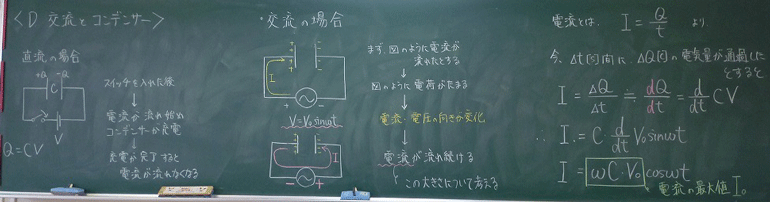 <D 交流とコンデンサー>
直流の場合
+Q -Q
C
V
Q=CV
スイッチを入れた後
↓
電流が流れ始め
コンデンサーが充電
↓
充電が完了すると
電流が流れなくなる
・交流の場合
I
+ -
V=V₀sinωt
I
- +
まず図のように電流が
流れたとする
↓
図のように電荷がたまる
↓
電流・電圧の向きが変化
↓
電流が流れ続ける
この大きさについて考える
電流とは、 I = Q/t より
今、Δt[s]間に、ΔQ[C]の電気量が通過した
とすると
I = ΔQ/Δt ≒ dQ/dt = d/dt CV
∴ I = C・d/dt V₀sinωt
I = ωC・V₀cosωt
電流の最大値 I₀